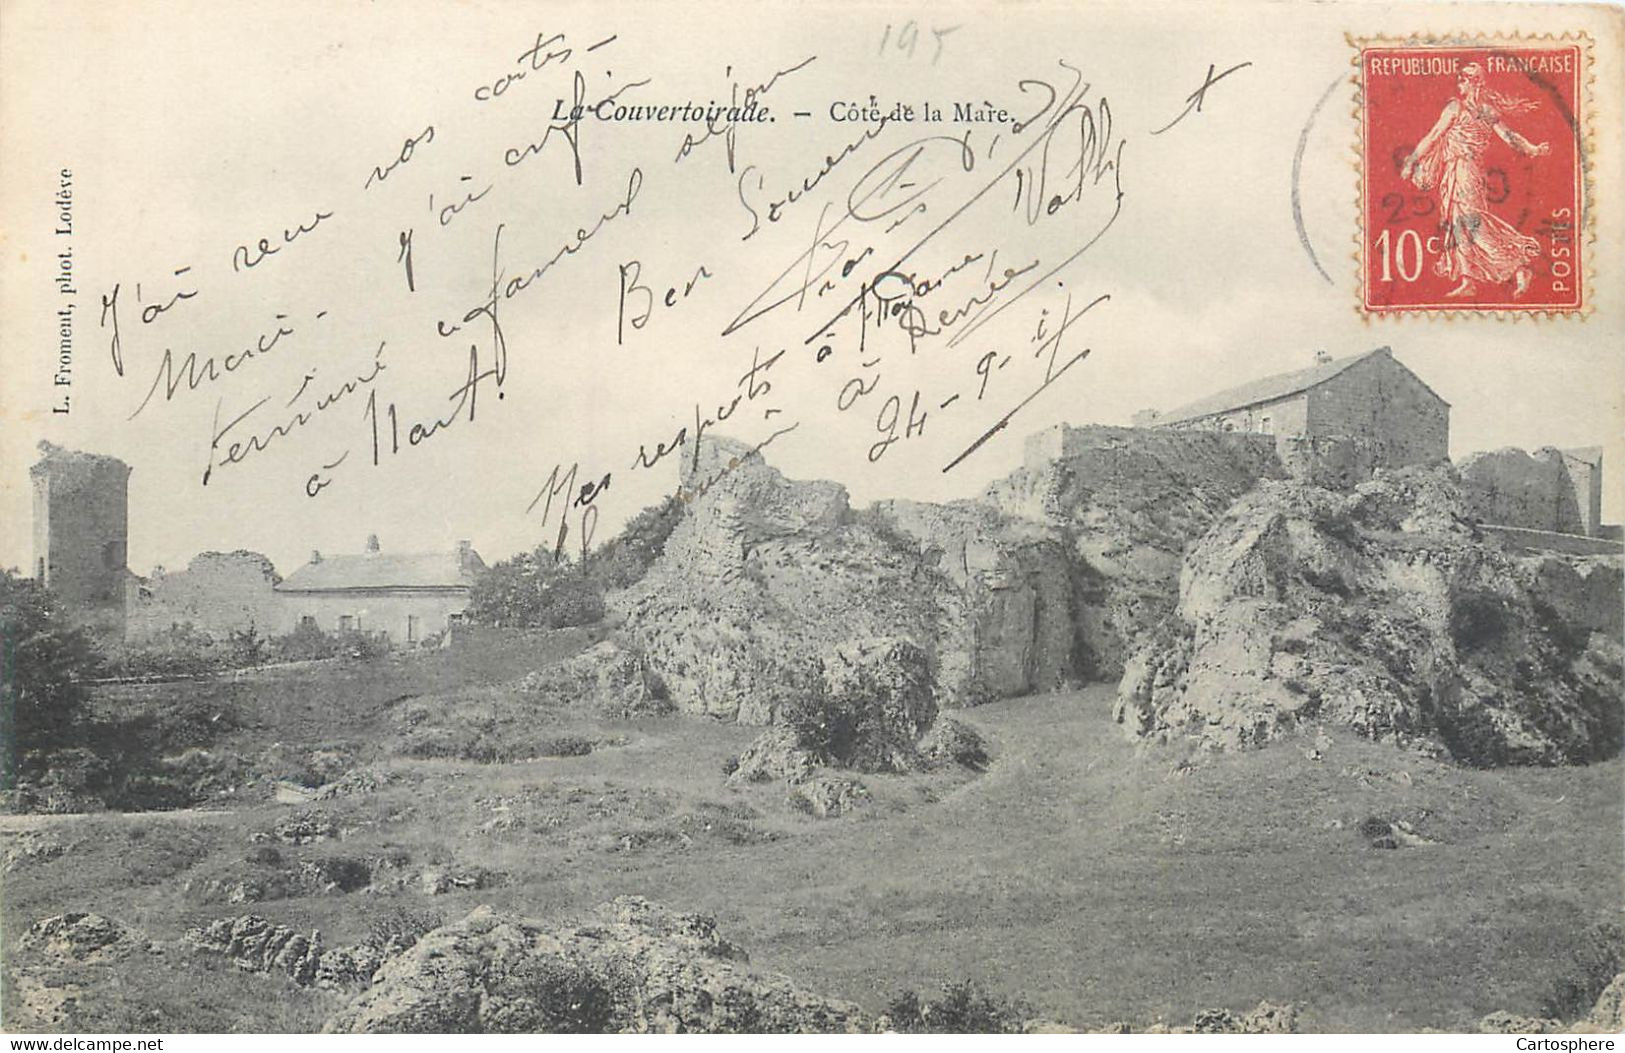 195
La Couvertoirade. — Côté de la Mare.
L. Froment, phot. Lodève
REPUBLIQUE FRANÇAISE
10 c
POSTES
25
J'ai reçu vos cartes -
Merci - J'ai enfin
terminé mon séjour
à Nant.
Bon Souvenir
Mes respects à Madame
à Renée
24-9-
www.delcampe.net
Cartosphere